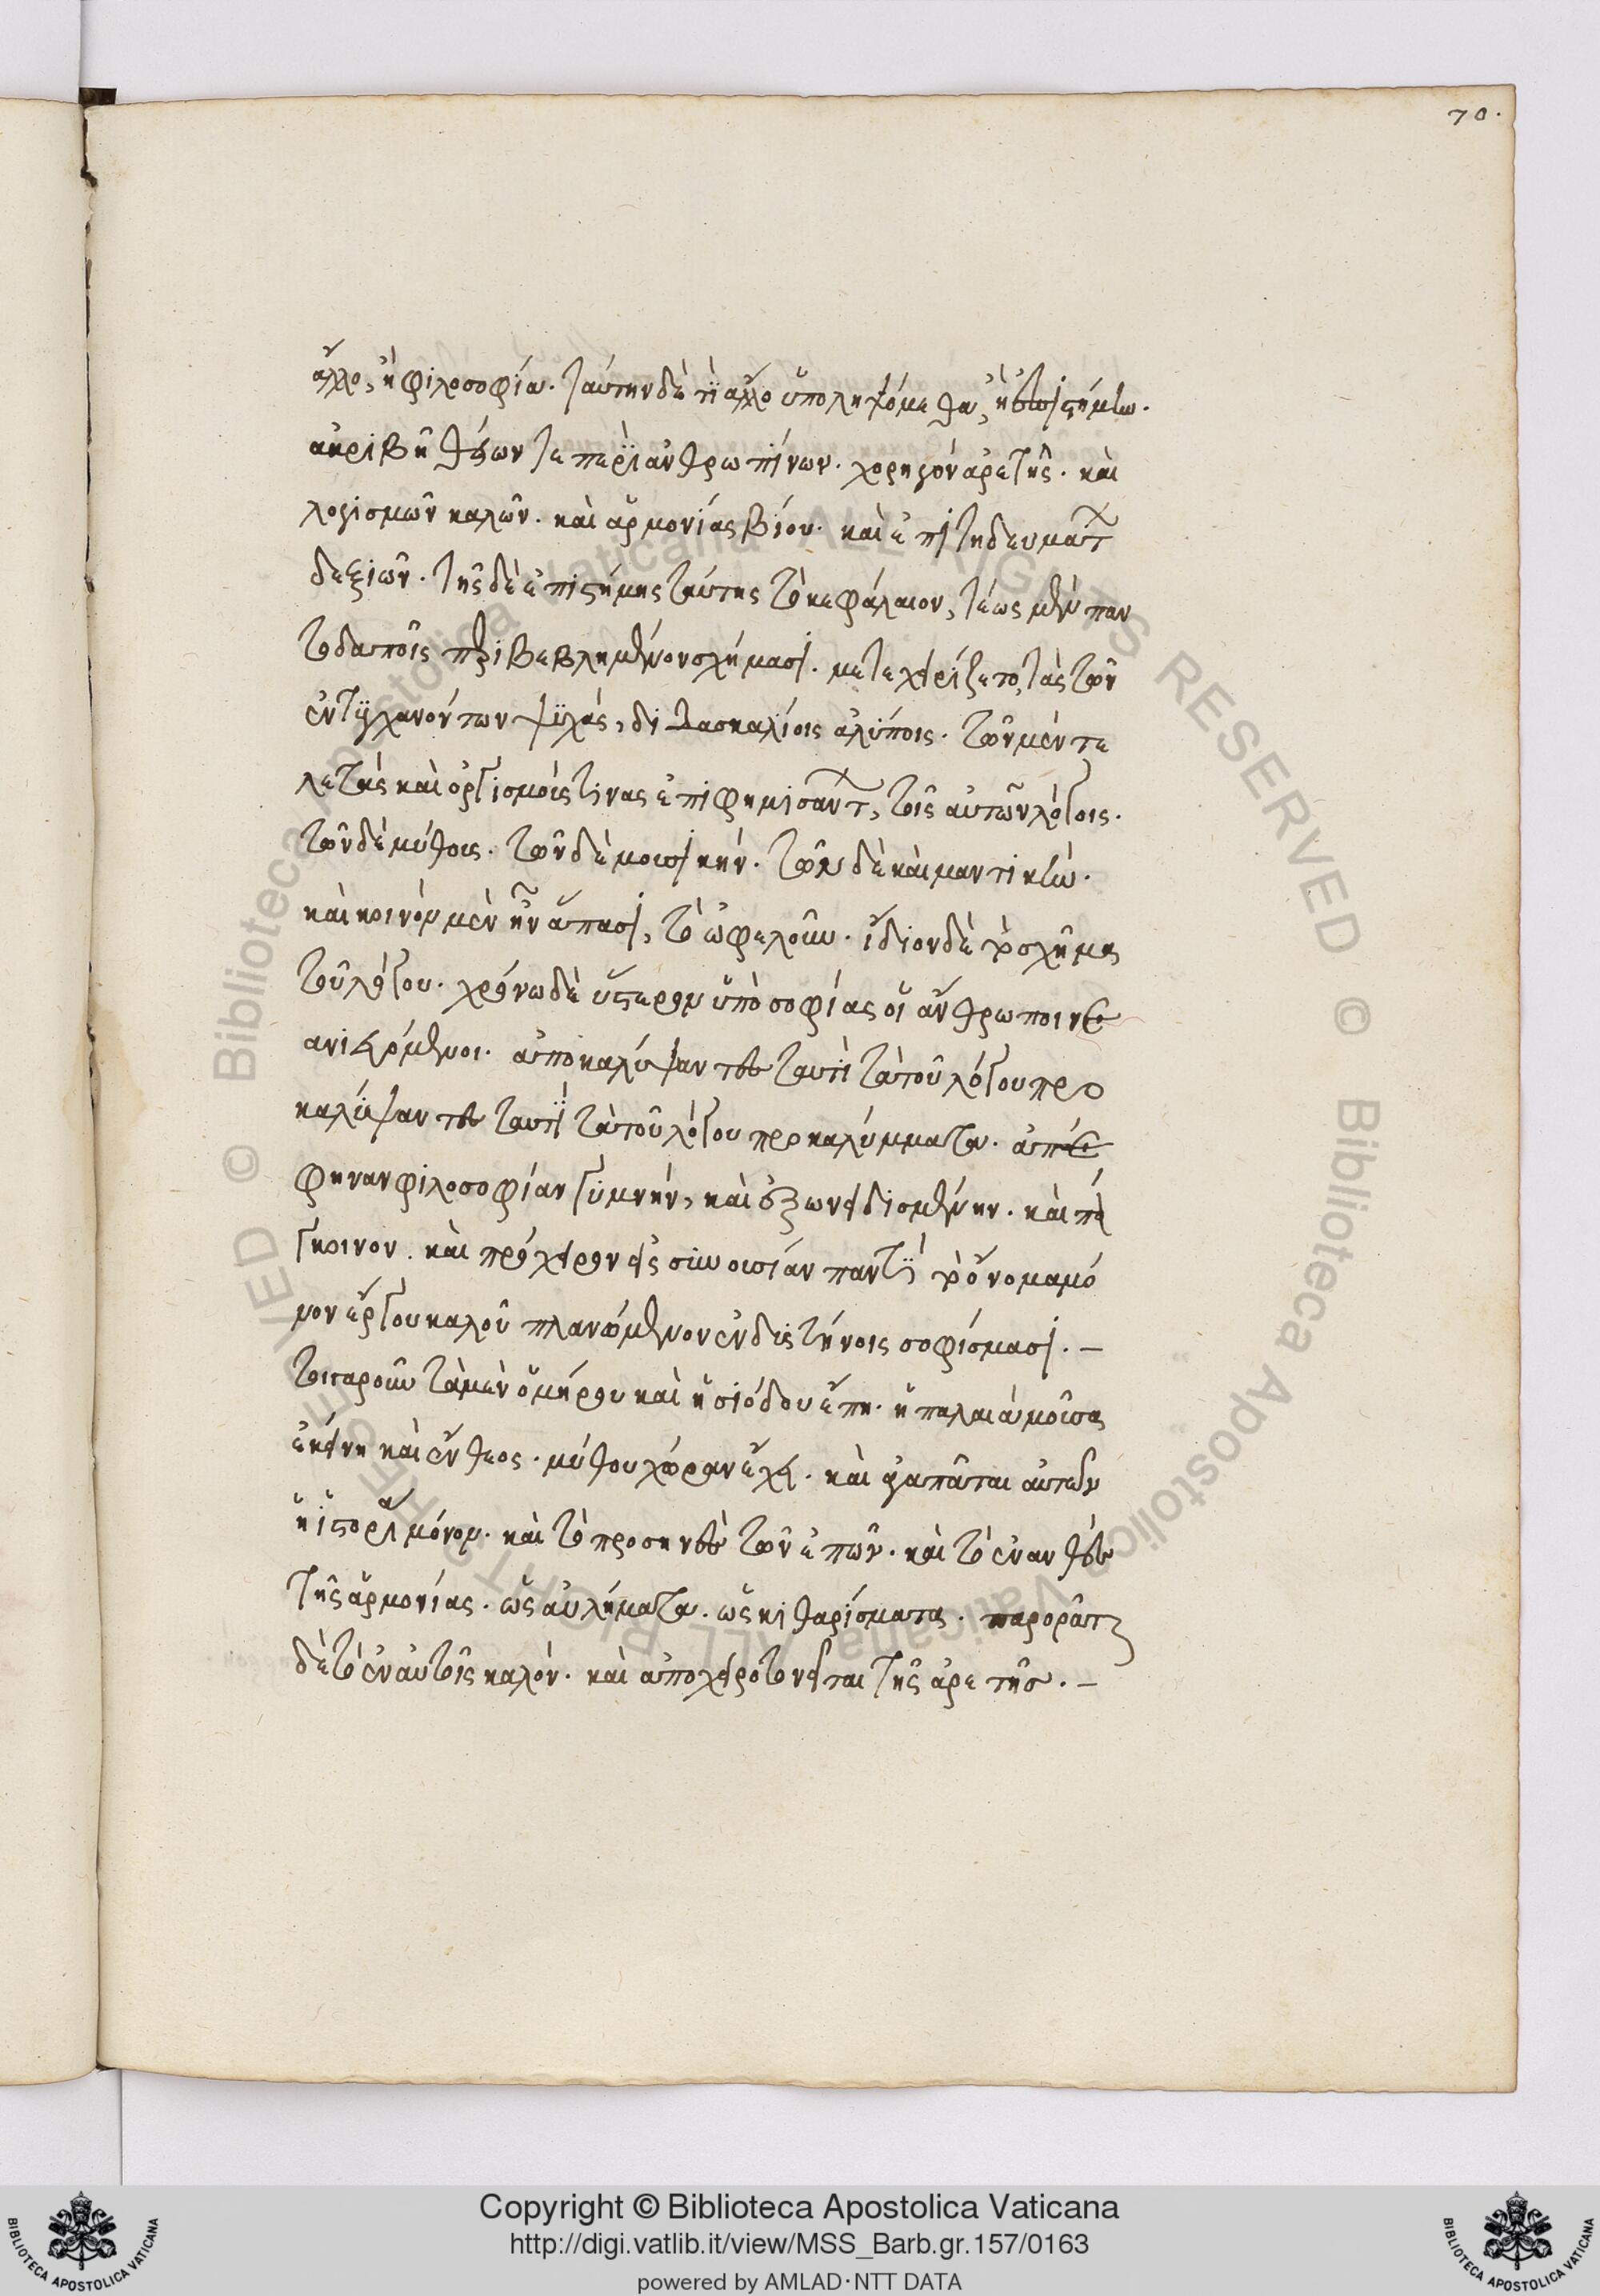 70.
ἄλλο, ἢ φιλοσοφία. ταύτην δὲ τί ἄλλο ὑποληψόμεθα, ἢ ἐπιστήμην.
ἀκριβῆ θείων τε πέρι ἀνθρωπίνων. χορηγὸν ἀρετῆς. καὶ
λογισμῶν καλῶν. καὶ ἁρμονίας βίου. καὶ ἐπιτηδευμάτων
δεξιῶν. τῆς δὲ ἐπιστήμης ταύτης τὸ κεφάλαιον, τέως μὲν παν
τοδαποῖς περιβεβλημένον σχήμασι. μετεχειρίζετο, τὰς τῶν
ἐντυγχανόντων ψυχάς, διδασκαλίοις ἀλύποις. τῶν μὲν τε
λετὰς καὶ ὀργισμούς τινας ἐπιφημισάντων, τοῖς αὐτῶν λόγοις.
τῶν δὲ μύθους. τῶν δὲ μουσικήν. τῶν δὲ καὶ μαντικήν.
καὶ κοινὸν μὲν ἦν ἅπασι, τὸ ὠφελοῦν. ἴδιον δὲ τὸ σχῆμα
τοῦ λόγου. χρόνω δὲ ὕστερον ὑπὸ σοφίας οἱ ἄνθρωποι νε
ανιευόμενοι. ἀποκαλύψαντες ταυτὶ τὰ τοῦ λόγου προ
καλύψαντες ταυτὶ τὰ τοῦ λόγου προκαλύμματα. ἀπέ
φηναν φιλοσοφίαν γυμνήν, καὶ ἐξωνειδισμένην. καὶ πά
γκοινον. καὶ πρόχειρον εἰς συνουσίαν παντί τὸ ὄνομα μό
νον ἔργου καλοῦ πλανώμενον ἐν δυστήνοις σοφίσμασι. –
τοιγαροῦν τὰ μὲν ὁμήρου καὶ ἡσιόδου ἔπη. ἡ παλαιὰ μοῦσα
ἐκείνη καὶ ἔνθεος. μύθου χώραν ἔχει. καὶ ἀγαπᾶται αὐτῶν
ἡ ἱστορία μόνον. καὶ τὸ προσηνὲς τῶν ἐπῶν. καὶ τὸ εὐανθὲς
τῆς ἁρμονίας. ὡς αὐλήματα. ὡς κιθαρίσματα. παρορᾶται
δὲ τὸ ἐν αὐτοῖς καλόν. καὶ ἀποχειροτονεῖται τῆς ἀρετῆς. –
Copyright © Biblioteca Apostolica Vaticana
http://digi.vatlib.it/view/MSS_Barb.gr.157/0163
powered by AMLAD·NTT DATA